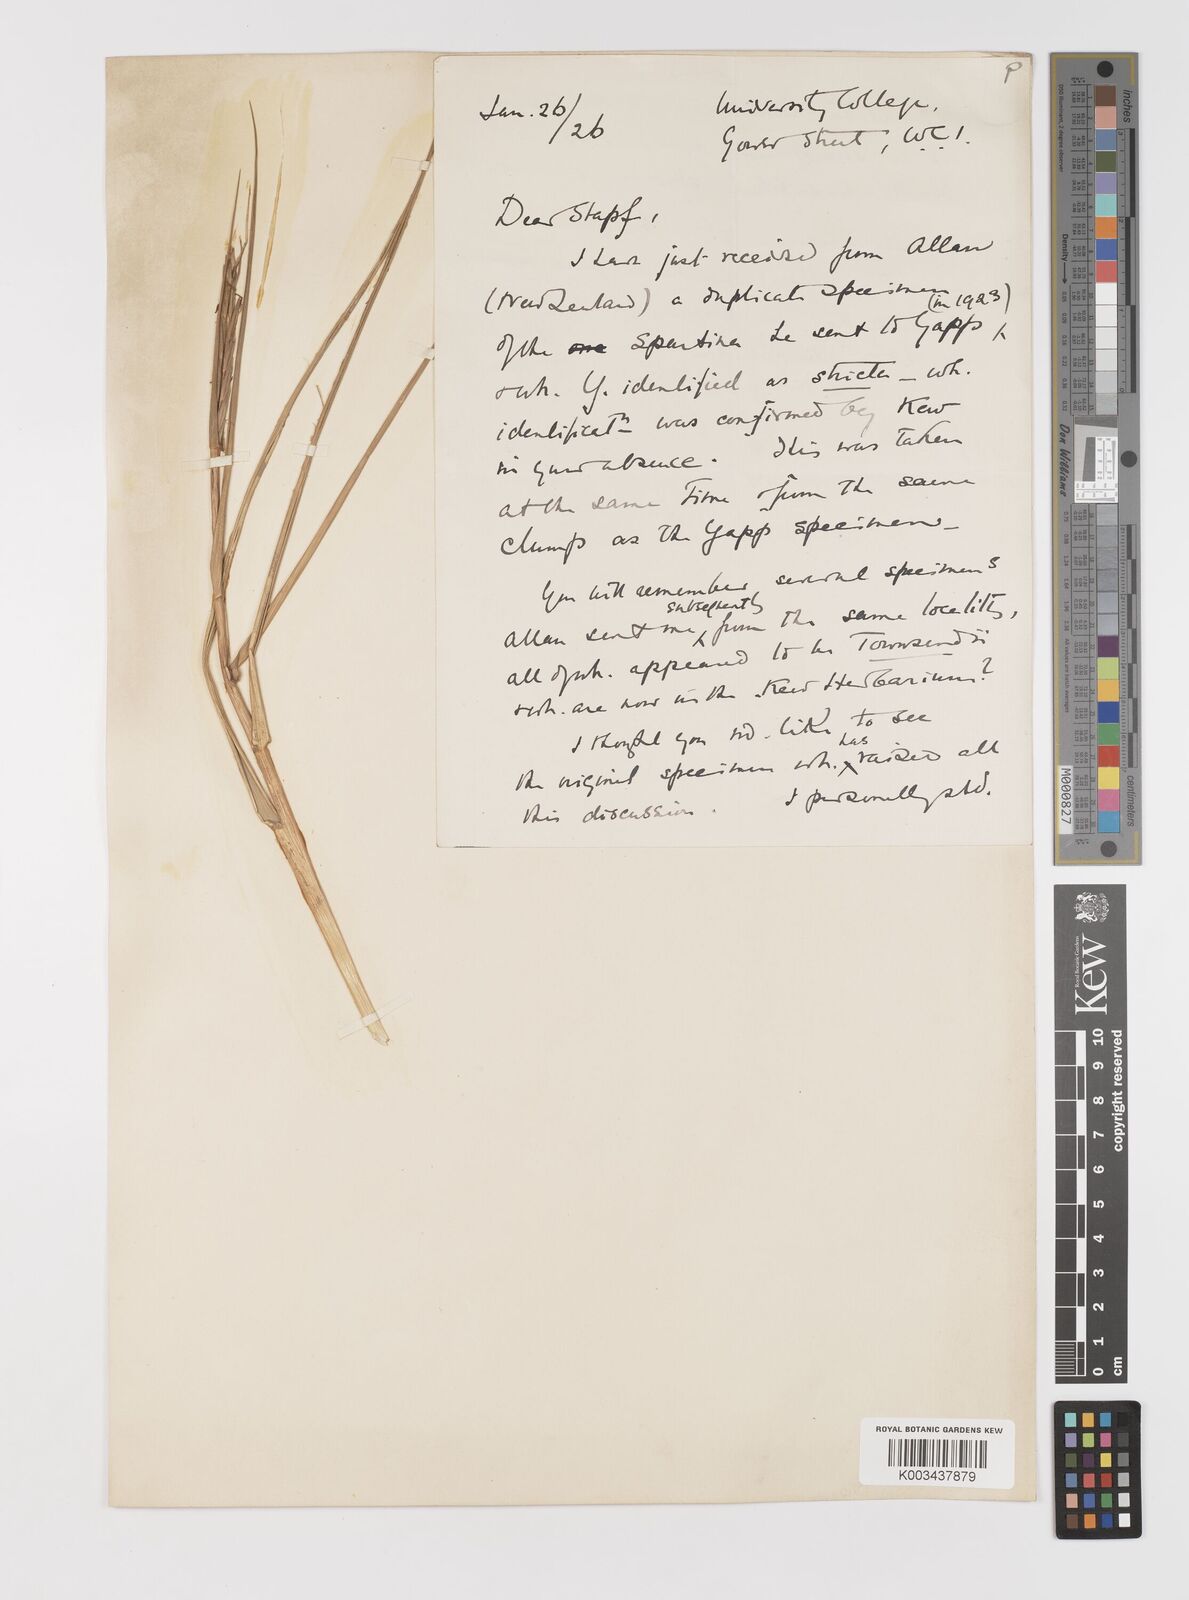 P
Jan. 26/26
University College,
Gower Street, W.C.1.
Dear Stapf,
I have just received from Allan
(New Zealand) a duplicate specimen
of the one Spartina he sent to Yapp (in 1923)
& wh. Y. identified as stricta - wh.
identificatn was confirmed by Kew
in your absence. This was taken
at the same time & from the same
clump as the Yapp specimen -
You will remember several specimens
Allan sent me subsequently from the same locality,
all of wh. appeared to be Townsendii
& wh. are now in the Kew Herbarium?
I thought you wd. like to see
the original specimen wh. has raised all
this discussion. I personally shd.
ROYAL BOTANIC GARDENS KEW
K003437879
inches
centimeters
Don Williams
M000827
Kew
Royal Botanic Gardens
copyright reserved
0 1 2 3 4 5 6 7 8 9 10
cm